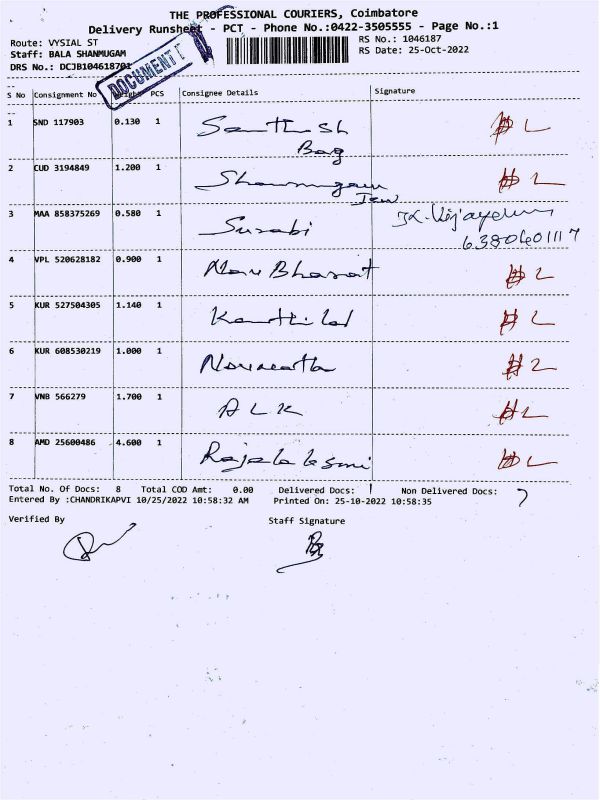 THE PROFESSIONAL COURIERS, Coimbatore
Delivery Runsheet - PCT - Phone No.:0422-3505555 - Page No.:1
Route: VYSIAL ST
RS No.: 1046187
Staff: BALA SHANMUGAM
RS Date: 25-Oct-2022
DRS No.: DCJB104618701
DOCUMENT
S No Consignment No Weight PCS Consignee Details Signature
1 SND 117903 0.130 1 Santhosh
Bag
2 CUD 3194849 1.200 1 Shanmugam
Jew
3 MAA 858375269 0.580 1 Surabi
6380601117
4 VPL 520628182 0.900 1 Nav Bharat
5 KUR 527504305 1.140 1
6 KUR 608530219 1.000 1
7 VNB 566279 1.700 1 ALK
8 AMD 25600486 4.600 1 Rajalaksmi
Total No. Of Docs: 8 Total COD Amt: 0.00 Delivered Docs: 1 Non Delivered Docs: 7
Entered By :CHANDRIKAPVI 10/25/2022 10:58:32 AM Printed On: 25-10-2022 10:58:35
Verified By Staff Signature